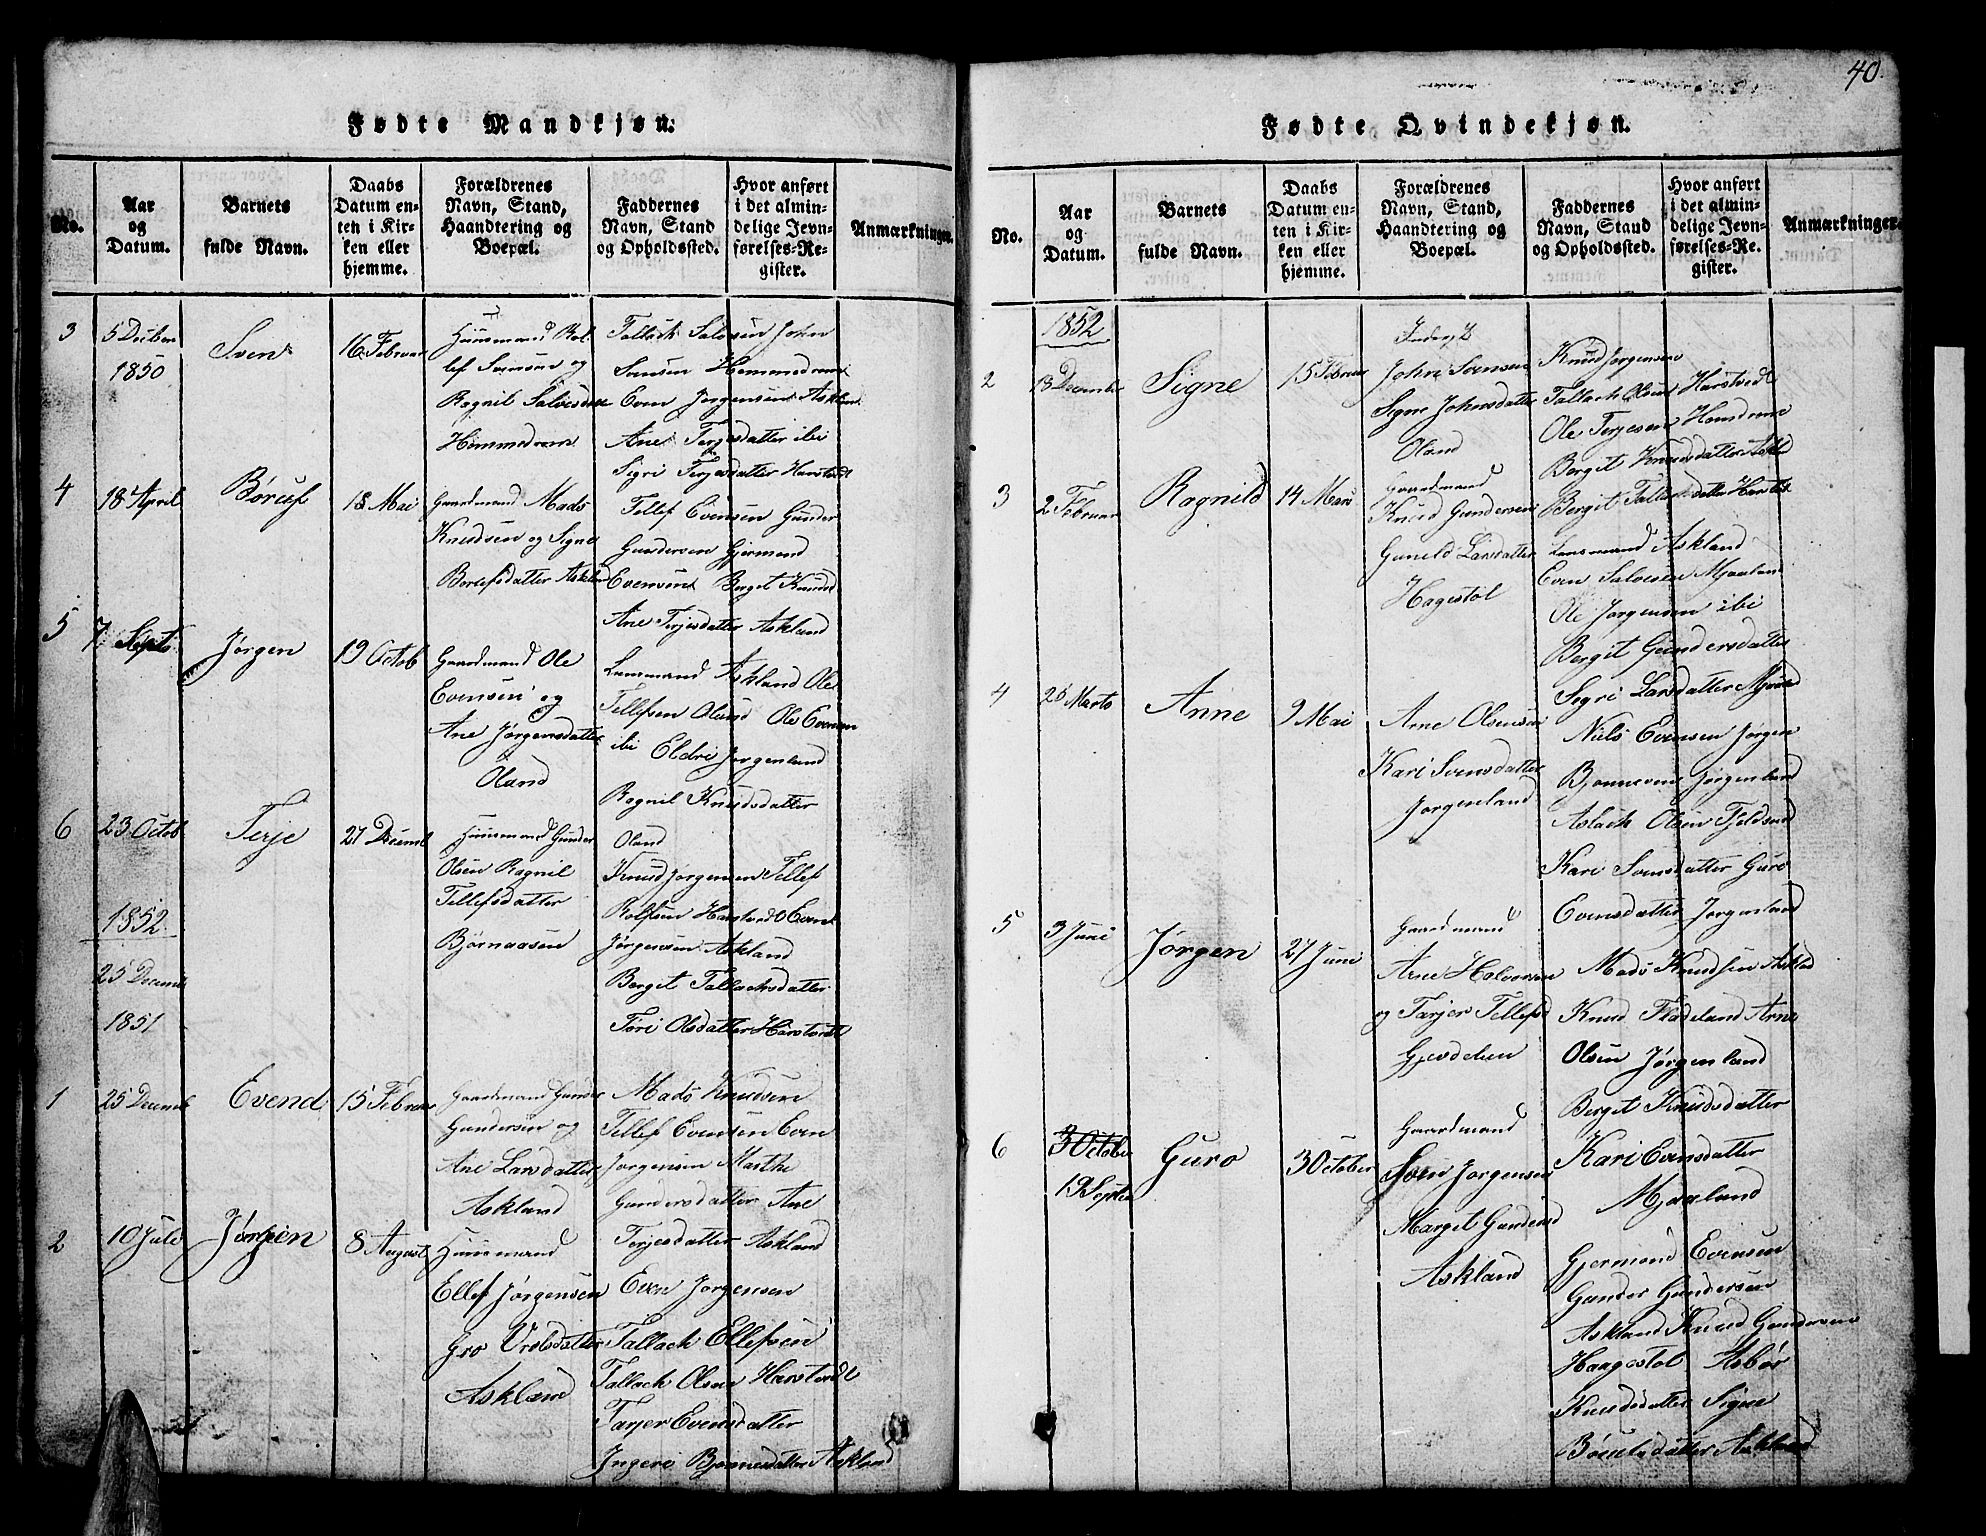 40.
Fødte Mandkjøn.
No.
Aar og Datum.
Barnets fulde Navn.
Daabs Datum enten i Kirken eller hjemme.
Forældrenes Navn, Stand, Haandtering og Boepæl.
Faddernes Navn, Stand og Opholdssted.
Hvor anført i det almindelige Jevnførelses-Register.
Anmærkninger.
3
5 Decber
1850
Sven
16 Februar
Huusmand Rol
lef Svensen og
Ragnil Salvesdatt
Hemmedrom
Tallack Salvesen John
Svensen Hemmedrom
Even Jørgensen Askland
Ane Terjesdatter ibi
Sigri Terjesdatter Harstvedt
4
18 April
Børuf
18 Mai
Gaardmand Mads
Knudsen og Signe
Borufsdatter Asklan
Tellef Evensen Gunder
Gundersen Gjermond
Evensen Berget Knudsd
Ane Terjesdatter Askland
5
7 Septb
Jørgen
19 Octob
Gaardmand Ole
Evensen og
Ane Jørgensdatter
Oland
Lensmand Askland Ole
Tellefsen Oland Ole Evensen
ibi Eldri Jørgenland
Ragnil Knudsdatter
Oland
6
23 Octob
Terje
27 Decemb
Huusmand Gunder
Olsen Ragnil
Tellefsdatter
Bjørnaasen
Knud Jørgensen Tellef
Rolfsen Harstvedt Even
Jørgensen Askland
Bergit Tallachsdatter
Tøri Olsdatter Harstvedt
1852
25 Decemb
1851
1
25 Decemb
Evend
15 Februar
Gaardmand Gunder
Gundersen og
Ane Larsdatter
Askland
Mads Knudsen
Tellef Evensen Even
Jorgensen Marthe
Gundersdatter Ane
Terjesdatter Askland
2
10 Juli
Jørgen
8 August
Huusmand
Ellef Jørgensen
Gro Urolsdatter
Askland
Even Jorgensen
Tallach Ellefsen
Tallach Olsen Harstvedt
Tarjer Evensdatter
Ingeri Bjonnesdatter Askland
Fødte Qvindekjøn.
No.
Aar og Datum.
Barnets fulde Navn.
Daabs Datum enten i Kirken eller hjemme.
Forældrenes Navn, Stand, Haandtering og Boepæl.
Faddernes Navn, Stand og Opholdssted.
Hvor anført i det almindelige Jevnførelses-Register.
Anmærkninger.
1852
2
13 December
Signe
15 Februar
Inderst
John Svensen
Signe Johnsdatter
Oland
Knud Jørgensen
Tallach Olsen Harstvedt
Ole Terjesen Homdrom
Bergit Knudsdatter Askla
3
2 Februar
Ragnild
14 Mars
Gaardmand
Knud Gundersen
Guneld Larsdatter
Hagestol
Bergit Tallachsdatter Harstvdt
Lensmand Askland
Even Salvesen Mjaaland
Ole Jorgensen ibi
Bergit Gundersdatter
Sigri Larsdatter
4
25 Marts
Anne
9 Mai
Arne Olsensen
Kari Svensdatter
Jorgenland
Niels Evensen Jørgen
Bjonnesen Jørgenland
Aslach Olsen Fjeldsend
Kari Svensdatter Guro
Evensdatter Jørgenland
5
3 Juni
Jørgen
27 Juni
Gaardmand
Arne Halvorsen
og Tarjer Tellefsd
Gjesdelien
Mads Knudsen Asklad
Knud Fladeland Arne
Olsen Jørgenland
Berget Knudsdatter
Kari Evensdatter
Mjaaland
6
3 October
19 Septbr
Guro
3 October
Gaardmand
Sven Jorgensen
Marget Gundersd
Askland
Gjermond Evensen
Gunder Gundersen
Askland Knud Gundersen
Haagestol Asbør
Knudsdatter Signe
Børufsdatter Askland